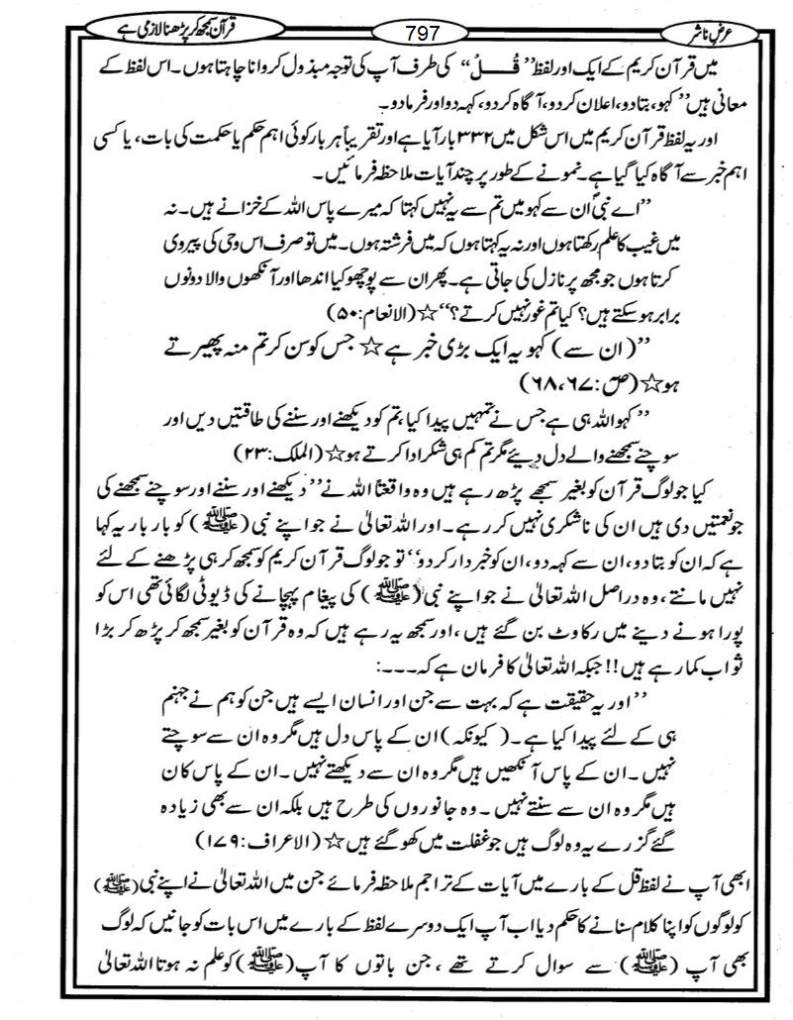 عرضِ ناشر
797
قرآن سمجھ کر پڑھنا لازمی ہے
میں قرآن کریم کے ایک اور لفظ ’’قُلْ‘‘ کی طرف آپ کی توجہ مبذول کروانا چاہتا ہوں۔ اس لفظ کے
معانی ہیں ’’کہو، بتا دو، اعلان کر دو، آگاہ کر دو، کہہ دو اور فرما دو۔
اور یہ لفظ قرآن کریم میں اس شکل میں ۳۳۲ بار آیا ہے اور تقریباً ہر بار کوئی اہم حکم یا حکمت کی بات، یا کسی
اہم خبر سے آگاہ کیا گیا ہے۔ نمونے کے طور پر چند آیات ملاحظہ فرمائیں۔
’’اے نبیؐ ان سے کہو میں تم سے یہ نہیں کہتا کہ میرے پاس اللہ کے خزانے ہیں۔ نہ
میں غیب کا علم رکھتا ہوں اور نہ یہ کہتا ہوں کہ میں فرشتہ ہوں۔ میں تو صرف اس وحی کی پیروی
کرتا ہوں جو مجھ پر نازل کی جاتی ہے۔ پھر ان سے پوچھو کیا اندھا اور آنکھوں والا دونوں
برابر ہو سکتے ہیں؟ کیا تم غور نہیں کرتے؟‘‘ ☆ (الانعام:۵۰)
’’(ان سے) کہو یہ ایک بڑی خبر ہے ☆ جس کو سن کر تم منہ پھیرتے
ہو☆ (صٓ:۶۷،۶۸)
’’کہو اللہ ہی ہے جس نے تمہیں پیدا کیا، تم کو دیکھنے اور سننے کی طاقتیں دیں اور
سوچنے سمجھنے والے دل دیئے مگر تم کم ہی شکر ادا کرتے ہو☆ (الملک:۲۳)
کیا جو لوگ قرآن کو بغیر سمجھے پڑھ رہے ہیں وہ واقعتًا اللہ نے ’’دیکھنے اور سننے اور سوچنے سمجھنے کی
جو نعمتیں دی ہیں ان کی ناشکری نہیں کر رہے۔ اور اللہ تعالیٰ نے جو اپنے نبی (ﷺ) کو بار بار یہ کہا
ہے کہ ان کو بتا دو، ان سے کہہ دو، ان کو خبردار کر دو‘‘ تو جو لوگ قرآن کریم کو سمجھ کر ہی پڑھنے کے لئے
نہیں مانتے، وہ دراصل اللہ تعالیٰ نے جو اپنے نبی (ﷺ) کی پیغام پہچانے کی ڈیوٹی لگائی تھی اس کو
پورا ہونے دینے میں رکاوٹ بن گئے ہیں، اور سمجھ یہ رہے ہیں کہ وہ قرآن کو بغیر سمجھ کر پڑھ کر بڑا
ثواب کما رہے ہیں!! جبکہ اللہ تعالیٰ کا فرمان ہے کہ۔۔۔:
’’اور یہ حقیقت ہے کہ بہت سے جن اور انسان ایسے ہیں جن کو ہم نے جہنم
ہی کے لئے پیدا کیا ہے۔ (کیونکہ) ان کے پاس دل ہیں مگر وہ ان سے سوچتے
نہیں۔ ان کے پاس آنکھیں ہیں مگر وہ ان سے دیکھتے نہیں۔ ان کے پاس کان
ہیں مگر وہ ان سے سنتے نہیں۔ وہ جانوروں کی طرح ہیں بلکہ ان سے بھی زیادہ
گئے گزرے یہ وہ لوگ ہیں جو غفلت میں کھو گئے ہیں ☆ (الاعراف:۱۷۹)
ابھی آپ نے لفظ قل کے بارے میں آیات کے تراجم ملاحظہ فرمائے جن میں اللہ تعالیٰ نے اپنے نبی (ﷺ)
کو لوگوں کو اپنا کلام سنانے کا حکم دیا اب آپ ایک دوسرے لفظ کے بارے میں اس بات کو جانیں کہ لوگ
بھی آپ (ﷺ) سے سوال کرتے تھے، جن باتوں کا آپ (ﷺ) کو علم نہ ہوتا اللہ تعالیٰ